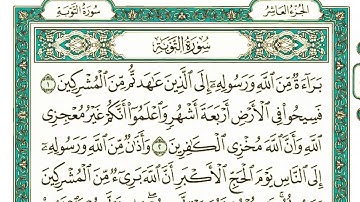 الجزء العاشر
سورة التوبة
سورة التوبة
براءة من الله ورسوله إلى الذين عهدتم من المشركين ١
فسيحوا في الأرض أربعة أشهر واعلموا أنكم غير معجزي
الله وأن الله مخزي الكفرين ٢ وأذن من الله ورسوله
إلى الناس يوم الحج الأكبر أن الله بريء من المشركين